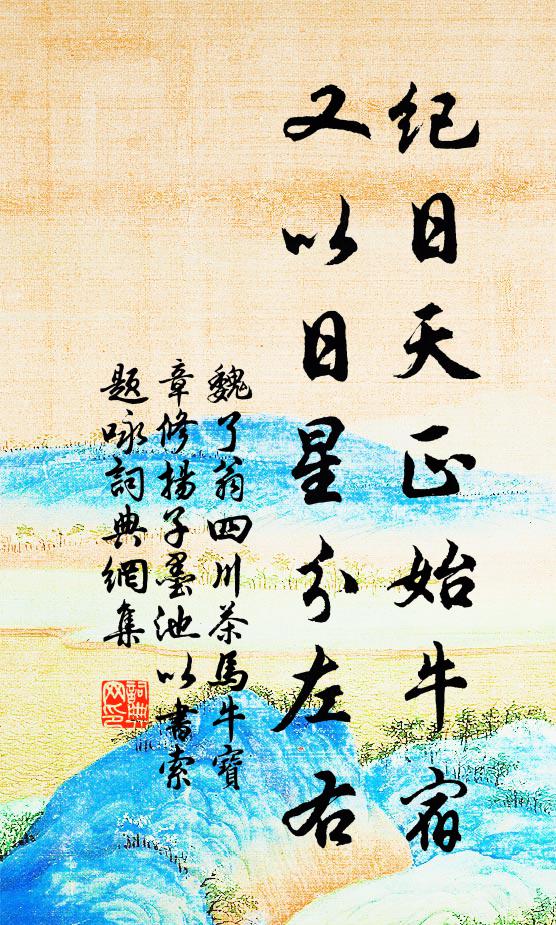 紀日天正始牛宿
又以日星分左右
魏了翁四川茶馬牛寶
章修揚子墨池以書索
題咏詞典網集
詞典网印